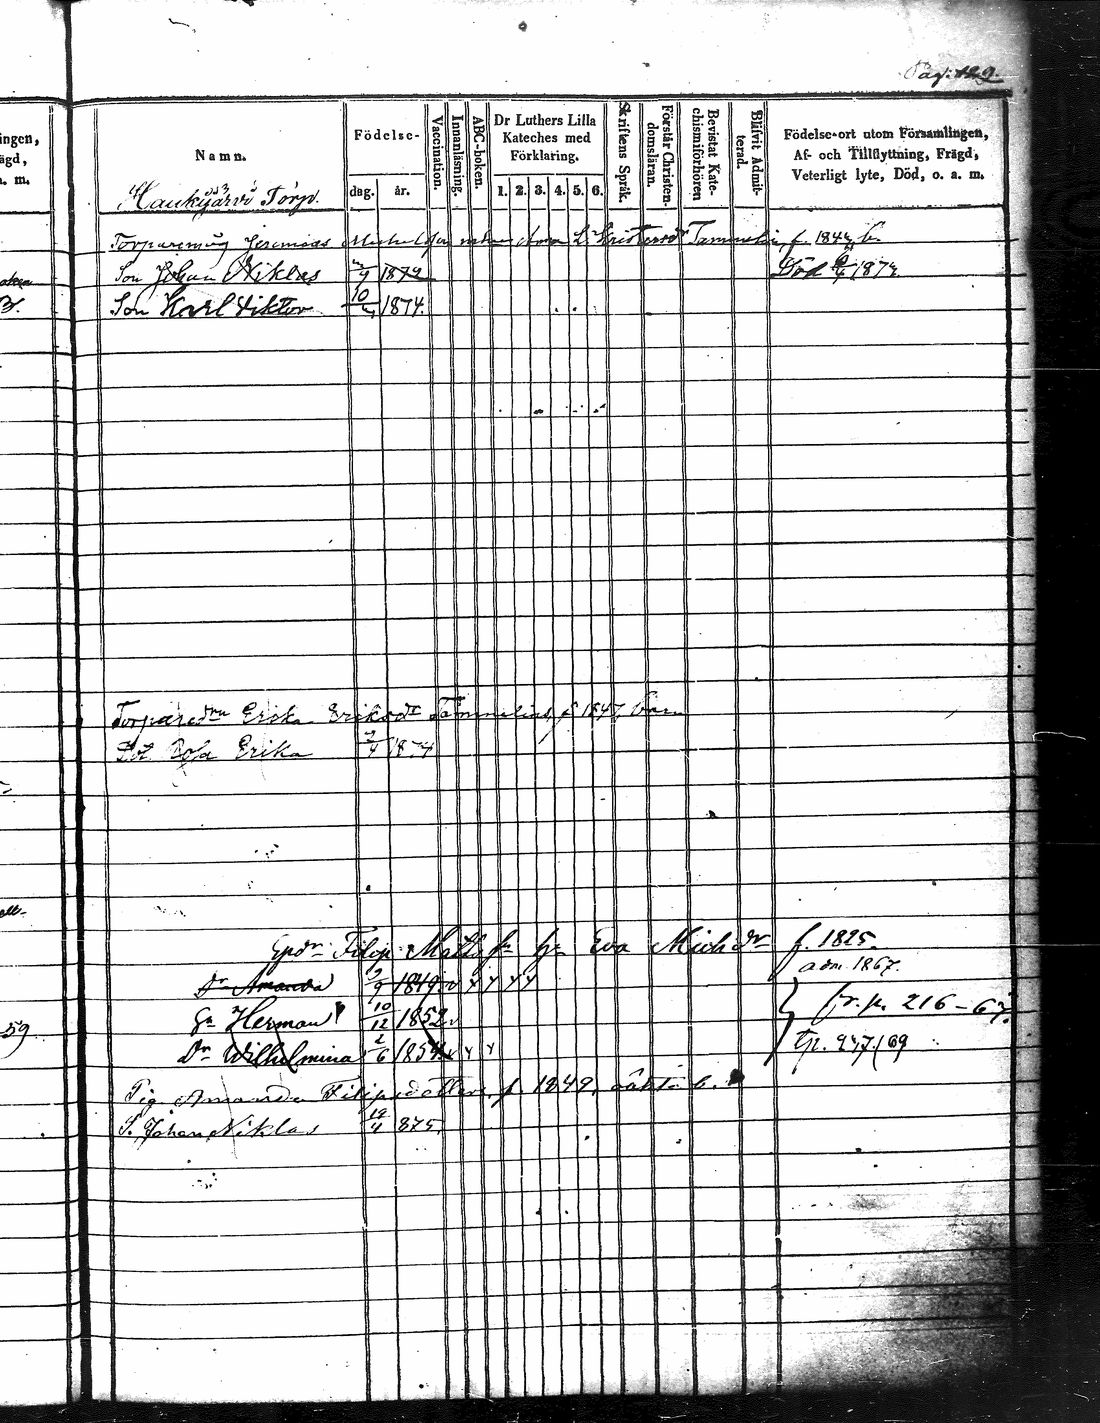 Pag: 129.
ingen,
ägd,
n. m.
Namn.
Födelse-
dag.
år.
Vaccination.
Innanläsning.
ABC-boken.
Dr Luthers Lilla
Kateches med
Förklaring.
1. 2. 3. 4. 5. 6.
Skriftens Språk.
Förstår Christen-
domsläran.
Bevistat Kate-
chismiförhören
Blifvit Admit-
terad.
Födelse-ort utom Församlingen,
Af- och Tillflyttning, Frägd,
Veterligt lyte, Död, o. a. m.
Haukijärvi Torp.
Jeremias Michelsson Anna L. Tammelin, f. 1844, b.
Son Johan Niklas 9 1872 Död 1872
Son Karl Viktor 10 1874.
Erika Eriksdr Tammelin, f. 1847, barn
Dot. Rosa Erika 2/4 1874
Filip Mattsson hu Eva Michdr f. 1825.
adm. 1867.
Dr Amanda 9/9 1849 v x x x x
Gn Herman 10/12 1852 v
fr. p. 216-67.
Dr Wilhelmina 2/6 1854 v x x
tp. 247/69
59
Pig. Amanda Filipsdotter, f. 1849, oäkta b.
S. Johan Niklas 19/4 875.